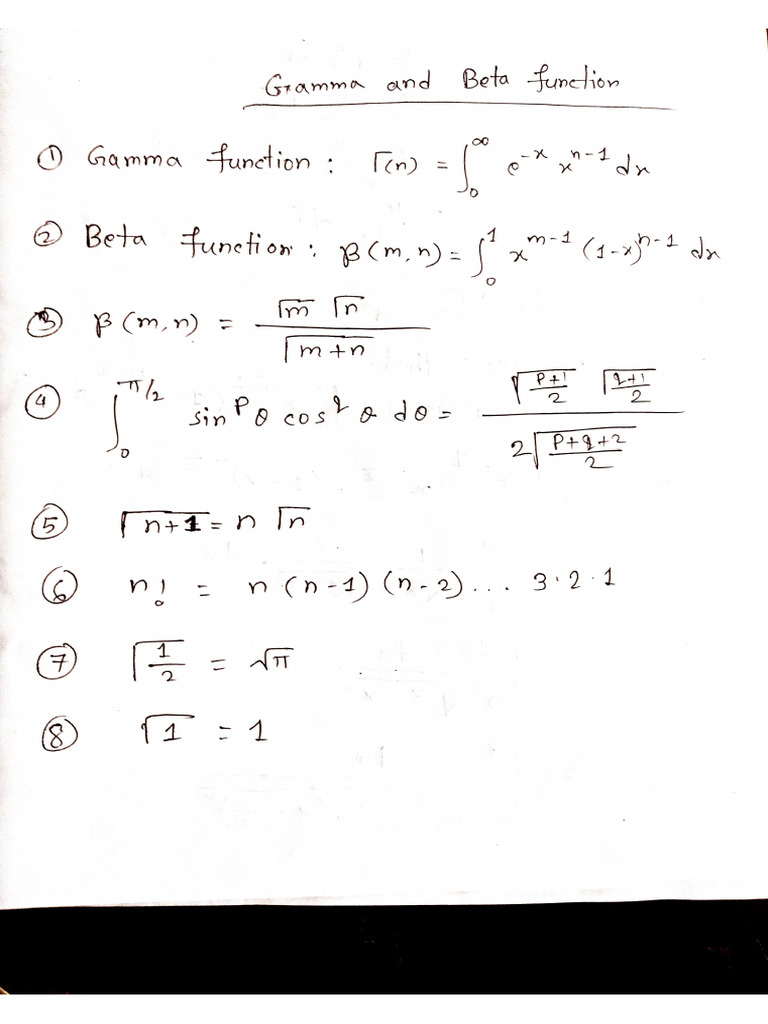 Gramma and Beta function
① Gamma function : Γ(n) = ∫₀^∞ e^{-x} x^{n-1} dx
② Beta function : β(m,n) = ∫₀^1 x^{m-1} (1-x)^{n-1} dx
③ β(m,n) = (Γm Γn) / (Γm+n)
④ ∫₀^{π/2} sin^p θ cos^q θ dθ = (Γ(p+1)/2 Γ(q+1)/2) / (2Γ(p+q+2)/2)
⑤ Γn+1 = n Γn
⑥ n! = n (n-1) (n-2) ... 3·2·1
⑦ Γ1/2 = √π
⑧ Γ1 = 1